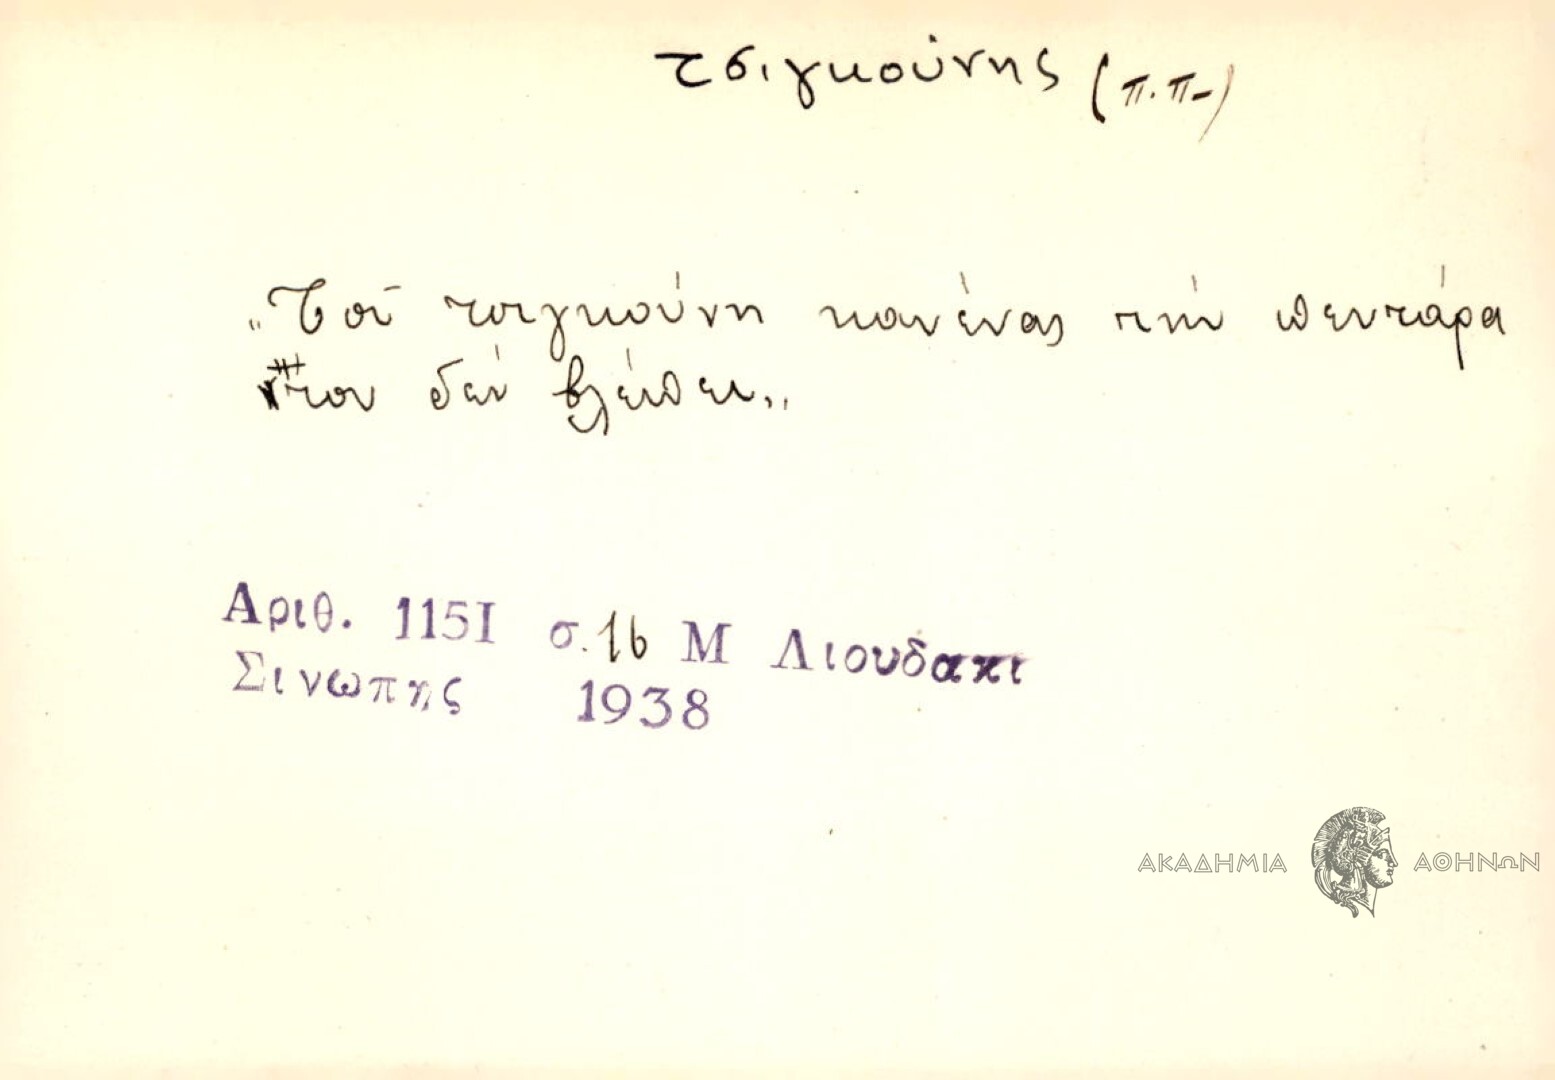 τσιγκούνης (π.π-)
„Τοῦ τσιγκούνη κανένας τὴν πεντάρα
του δὲν βλέπει„
Αριθ. 1151 σ. 16 Μ Λιουδακι
Σινωπης 1938
ΑΚΑΔΗΜΙΑ ΑΘΗΝΩΝ